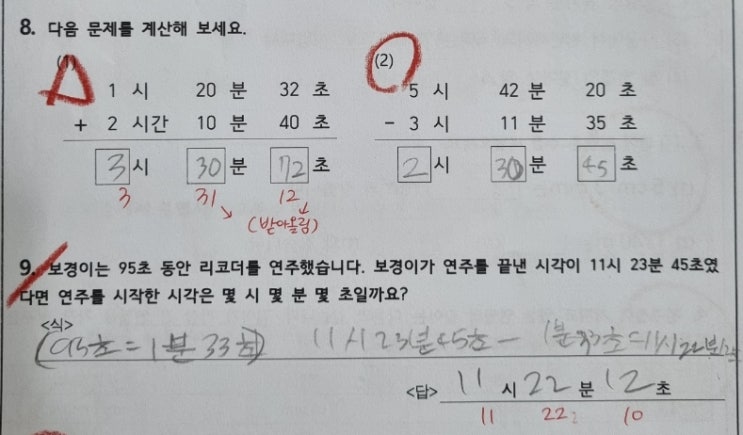 8. 다음 문제를 계산해 보세요.
(1) (2)
1 시 20 분 32 초 5 시 42 분 20 초
+ 2 시간 10 분 40 초 - 3 시 11 분 35 초
3 시 30 분 72 초 2 시 30 분 45 초
3 31 12
(받아올림)
9. 보경이는 95초 동안 리코더를 연주했습니다. 보경이가 연주를 끝낸 시각이 11시 23분 45초였
다면 연주를 시작한 시각은 몇 시 몇 분 몇 초일까요?
<식>
(93초=1분 33초) 11시 23분 45초 - 1분 33초=11시 22분 12초
<답> 11 시 22 분 12 초
11 22 10